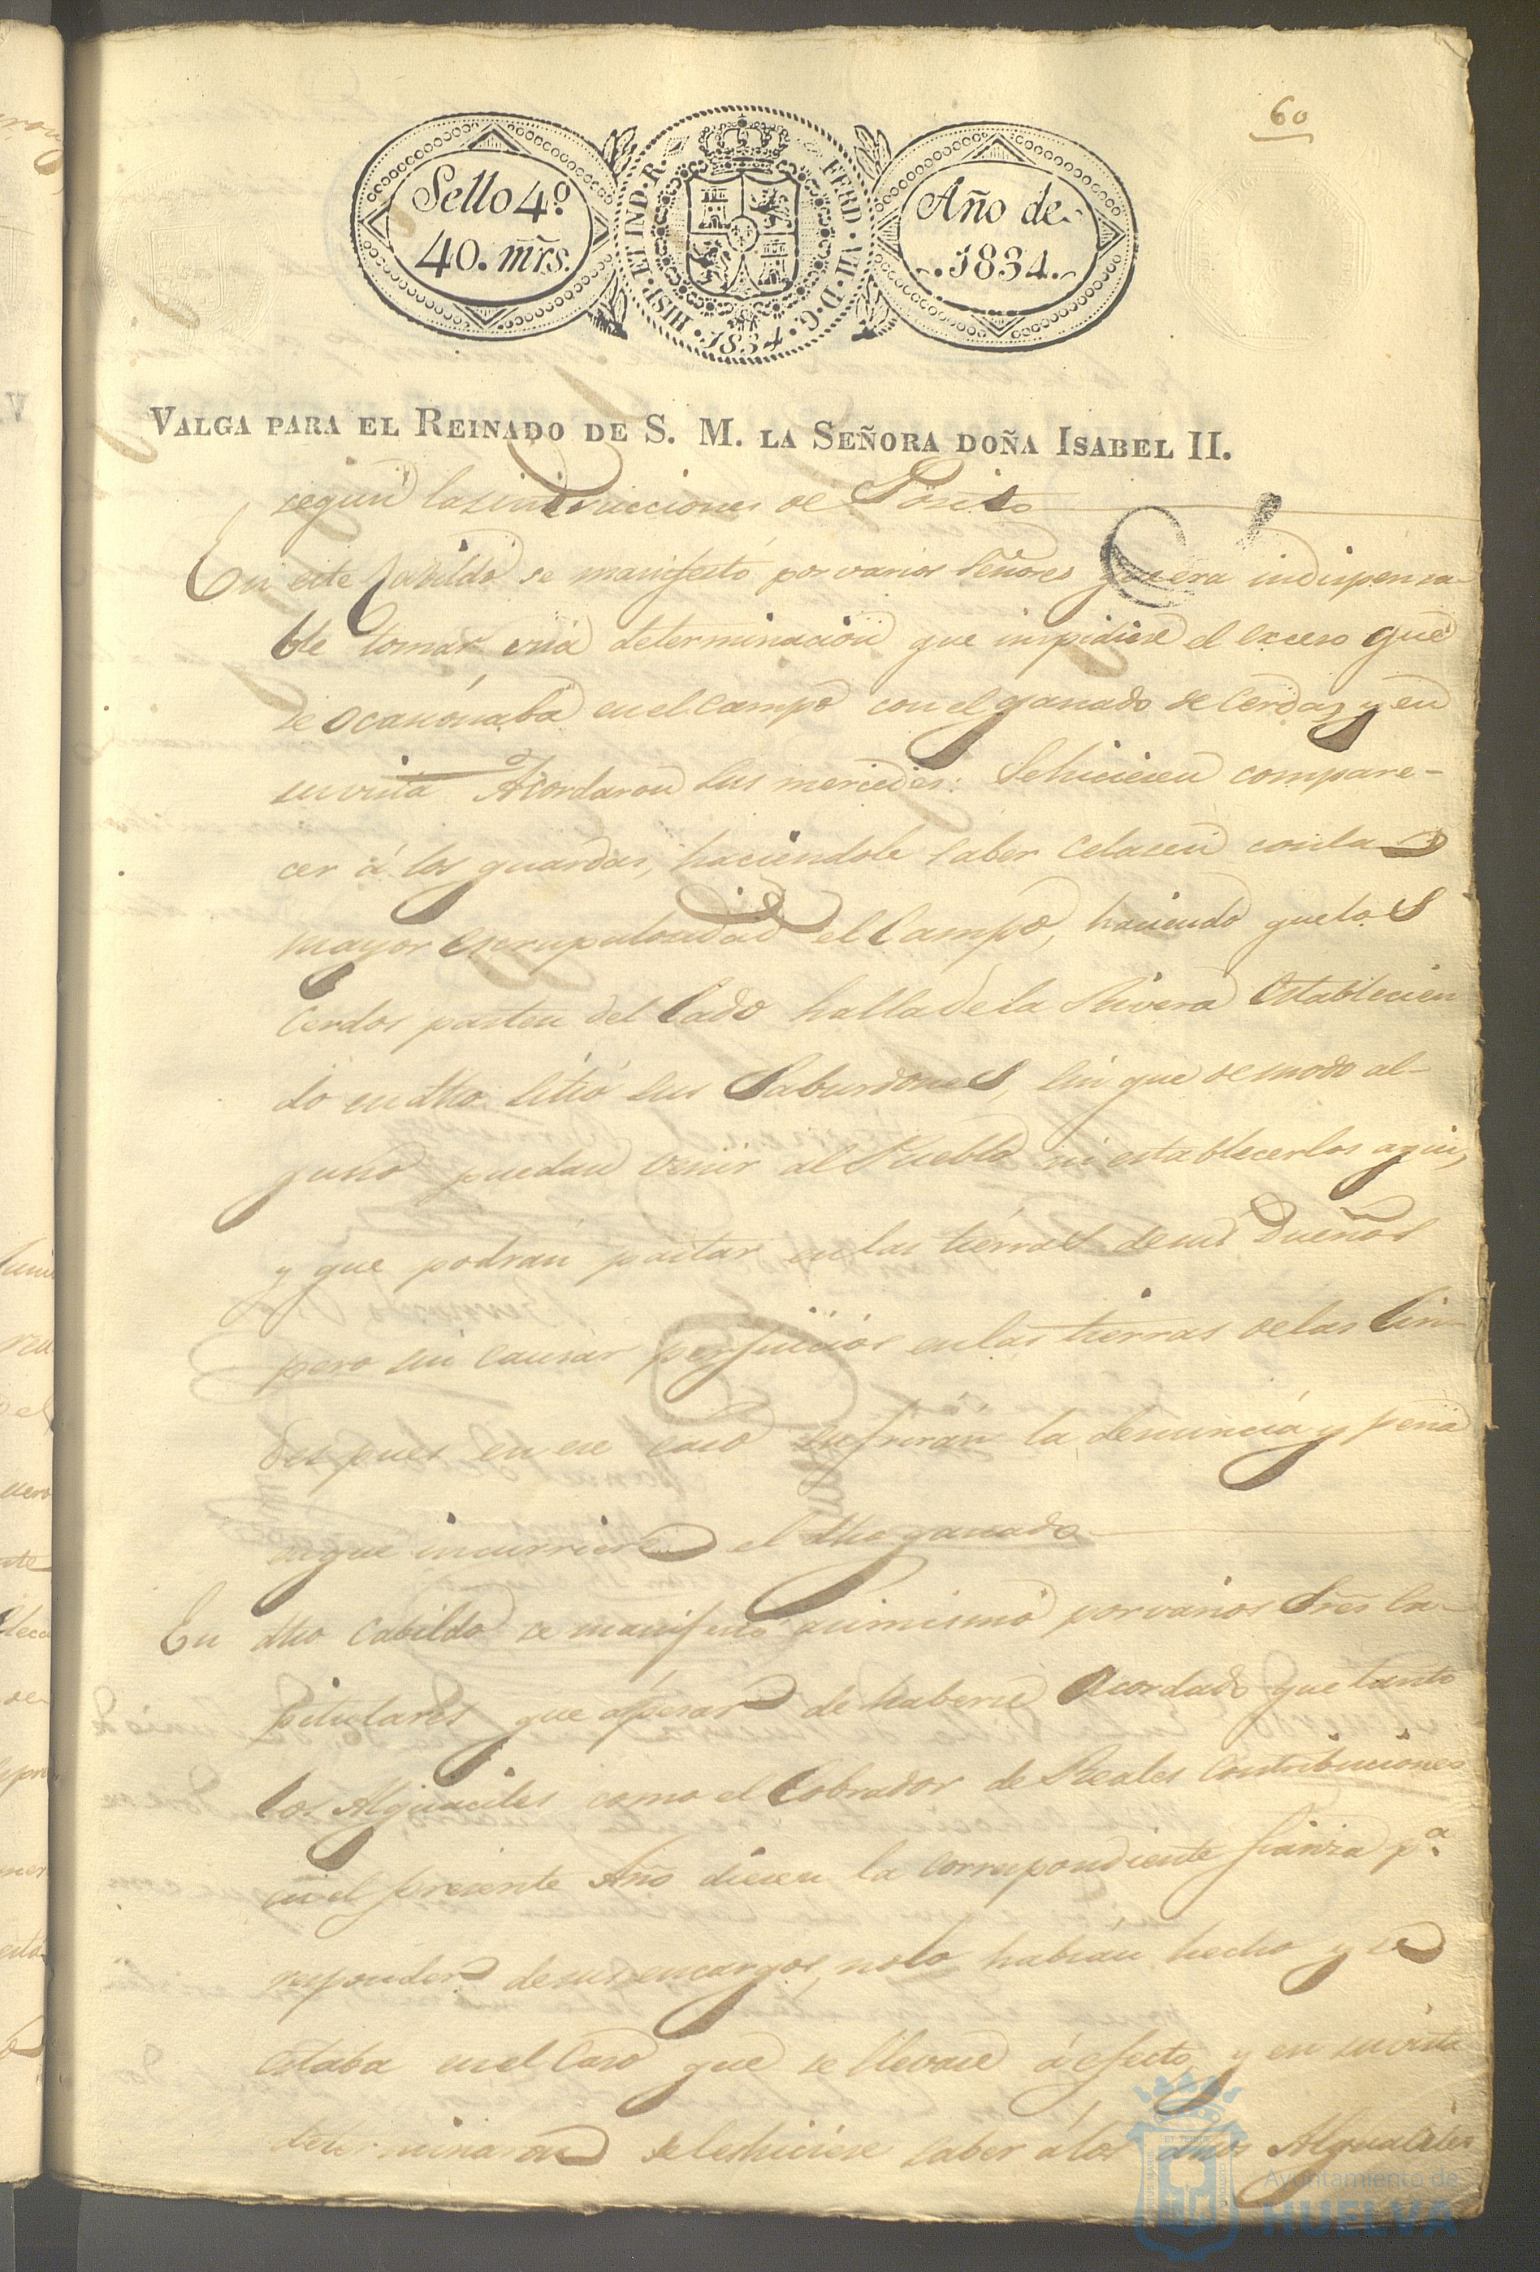 60
Sello 4º.
40. mrs.
HISP. ET IND. R.
FERD. VII. D. G.
1834
Año de
1834.
VALGA PARA EL REINADO DE S. M. LA SEÑORA DOÑA ISABEL II.
segun las instrucciones de Posito
En este Cavildo se manifestó por varios Señores que era indispensa-
ble tomar una determinacion que impidiese el exceso que
se ocacionaba en el Campo con el ganado de Cerda, y en
su vista Acordaron Sus mercedes: Se hiciesen compare-
cer á los guardas, haciendole saber Celasen con la
mayor escrupulosidad el Campo, haciendo que los
Cerdos pasten del lado halla de la Rivera Establecien
do en dho sitio sus Saburdones, sin que de modo al-
guno puedan venir al Pueblo ni establecerlos aqui,
y que podrán pastar en las tierras de sus Dueños
pero sin causar perjuicios en las tierras de las Lin-
des pues en ese caso sufrirán la denuncia y pena
en que incurriere el dho ganado
En dho Cabildo se manifestó asimismo por varios Sres Ca-
pitulares que apesar de haberse Acordado que tanto
los Alguaciles como el Cobrador de Reales Contribuciones
en el presente Año diesen la correspondiente fianza pª.
responder de sus encargos, no lo habian hecho y se
estaba en el Caso que se llevase á efecto, y en su vista
determinaron se les hiciese saber á los dhos Alguaciles
Ayuntamiento de
HUELVA